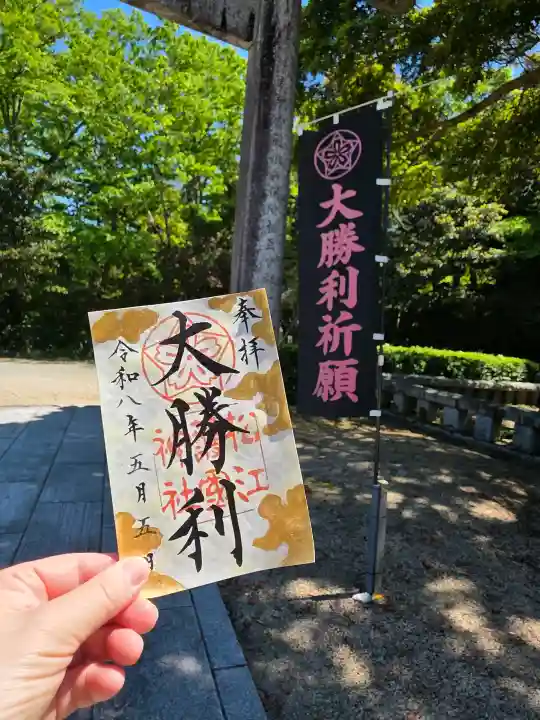 大勝利祈願
奉拝
大勝利
松江
護國
神社
令和八年五月五日